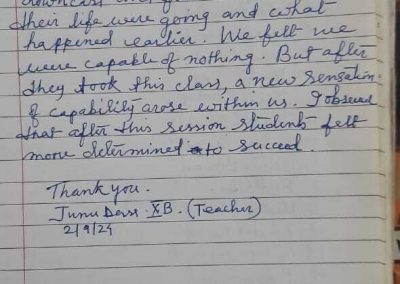 their life were going and what
happened earlier. We felt we
were capable of nothing. But after
they took this class, a new sensation
of capability arose within us. I observed
that after this session students felt
more determined to succeed.
Thank you.
Junu Dass XB. (Teacher)
2/9/24